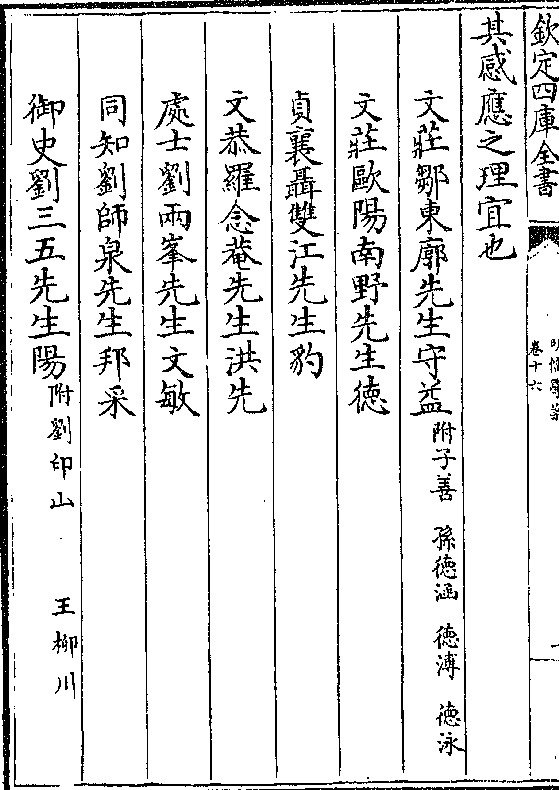 欽定四庫全書
卷十六
其感應之理宜也
文莊鄒東廓先生守益附子善 孫徳涵 徳溥 徳泳
文莊歐陽南野先生徳
貞襄聶雙江先生豹
文恭羅念菴先生洪先
處士劉兩峯先生文敏
同知劉師泉先生邦采
御史劉三五先生陽附劉印山 王柳川